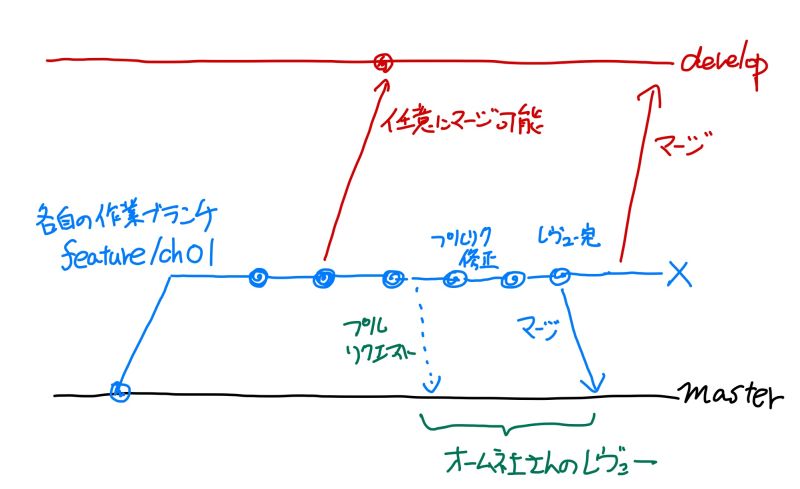 develop
任意にマージ可能
マージ
各自の作業ブランチ
feature/ch01
プルリク
修正
レヴュー完
X
プル
リクエスト
マージ
master
オーム社さんのレヴュー